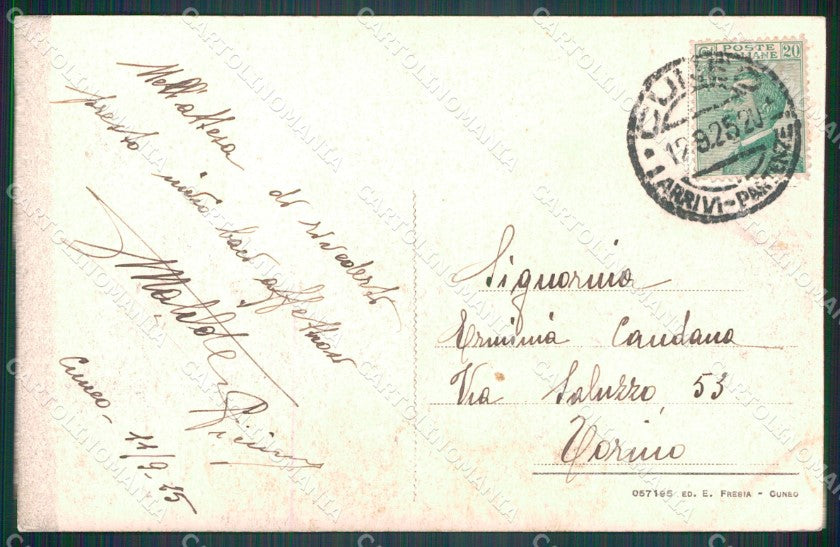 Nell'attesa di rivederti
presto invio baci affettuosi
Matilde
Cuneo - 11/9-25
POSTE
ITALIANE
20
CUNEO
12.9.25.20
ARRIVI-PARTENZE
Signorina
Erminia Candana
Via Saluzzo, 53
Torino
057195 ED. E. FRESIA - CUNEO
CARTOLINOMANIA